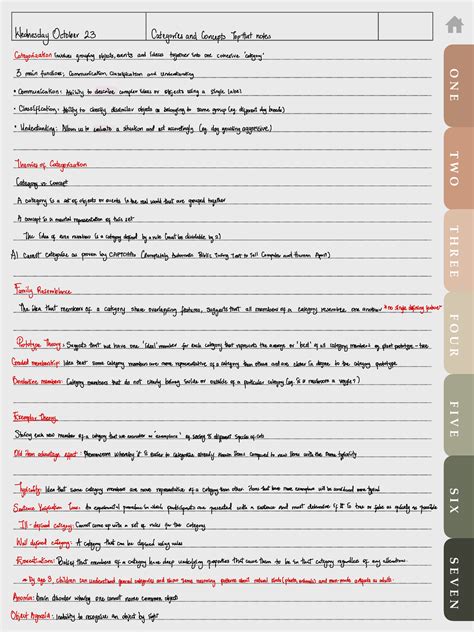 Wednesday October 23
Categories and Concepts Top Hat notes
Categorization involves grouping objects, events and ideas together into one cohesive "category"
3 main functions; Communication, Classification and Understanding
• Communication: Ability to describe complex ideas or objects using a single label
• Classification: Ability to classify dissimilar objects as belonging to same group (eg. different dog breeds)
• Understanding: Allows us to evaluate a situation and act accordingly (eg. dog growling aggressive)
Theories of Categorization
Category vs Concept
A category is a set of objects or events in the real world that are grouped together
A concept is a mental representation of this set
The idea of even numbers is a category defined by a rule (must be divisible by 2)
AI cannot categorize as proven by CAPTCHAs (Completely Automatic Public Turing Test to Tell Computer and Humans Apart)
Family Resemblance
The idea that members of a category share overlapping features, suggests that all members of a category resemble one another *no single defining feature*
Prototype Theory: Suggests that we have one "ideal" member for each category that represents the average or "best" of all category members eg plant prototype - tree
Graded membership: Idea that some category members are more representative of a category than others and are closer in degree to the category prototype
Borderline members: Category members that do not clearly belong inside or outside of a particular category (eg. is a mushroom a veggie?)
Exemplar Theory
Storing each new member of a category that we encounter as "exemplars" of
Old item advantage effect: Phenomenon whereby it is easier to categorize already known items compared to new items with the same typicality
Typicality: Idea that some category members are more representative of a category than other items that have more exemplars will be considered more typical
Sentence Verification Time: An experimental procedure in which participants are presented with a sentence and must determine if it is true or false as quickly as possible
Ill-defined category: Cannot come up with a set of rules for the category
Well defined category: A category that can be defined using rules
Essentialism: Belief that members of a category have deep underlying properties that cause them to be in that category regardless of any alterations
By age 3, children can understand general categories and show same reasoning patterns about natural kinds (plants, animals) and man-made artifacts as adults.
Anomia: Brain disorder whereby one cannot name common objects
Object Agnosia: Inability to recognize an object by sight
ONE
TWO
THREE
FOUR
FIVE
SIX
SEVEN